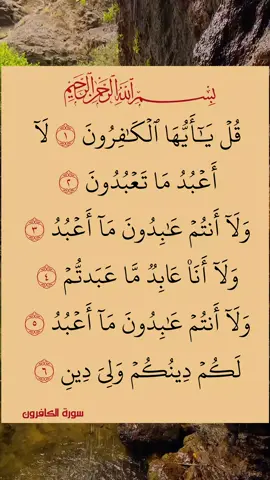 بِسْمِ ٱللَّهِ ٱلرَّحْمَٰنِ ٱلرَّحِيمِ
قُلْ يَـٰٓأَيُّهَا ٱلْكَـٰفِرُونَ ١ لَآ
أَعْبُدُ مَا تَعْبُدُونَ ٢
وَلَآ أَنتُمْ عَـٰبِدُونَ مَآ أَعْبُدُ ٣
وَلَآ أَنَا۠ عَابِدٌ مَّا عَبَدتُّمْ ٤
وَلَآ أَنتُمْ عَـٰبِدُونَ مَآ أَعْبُدُ ٥
لَكُمْ دِينُكُمْ وَلِىَ دِينِ ٦
سورة الكافرون